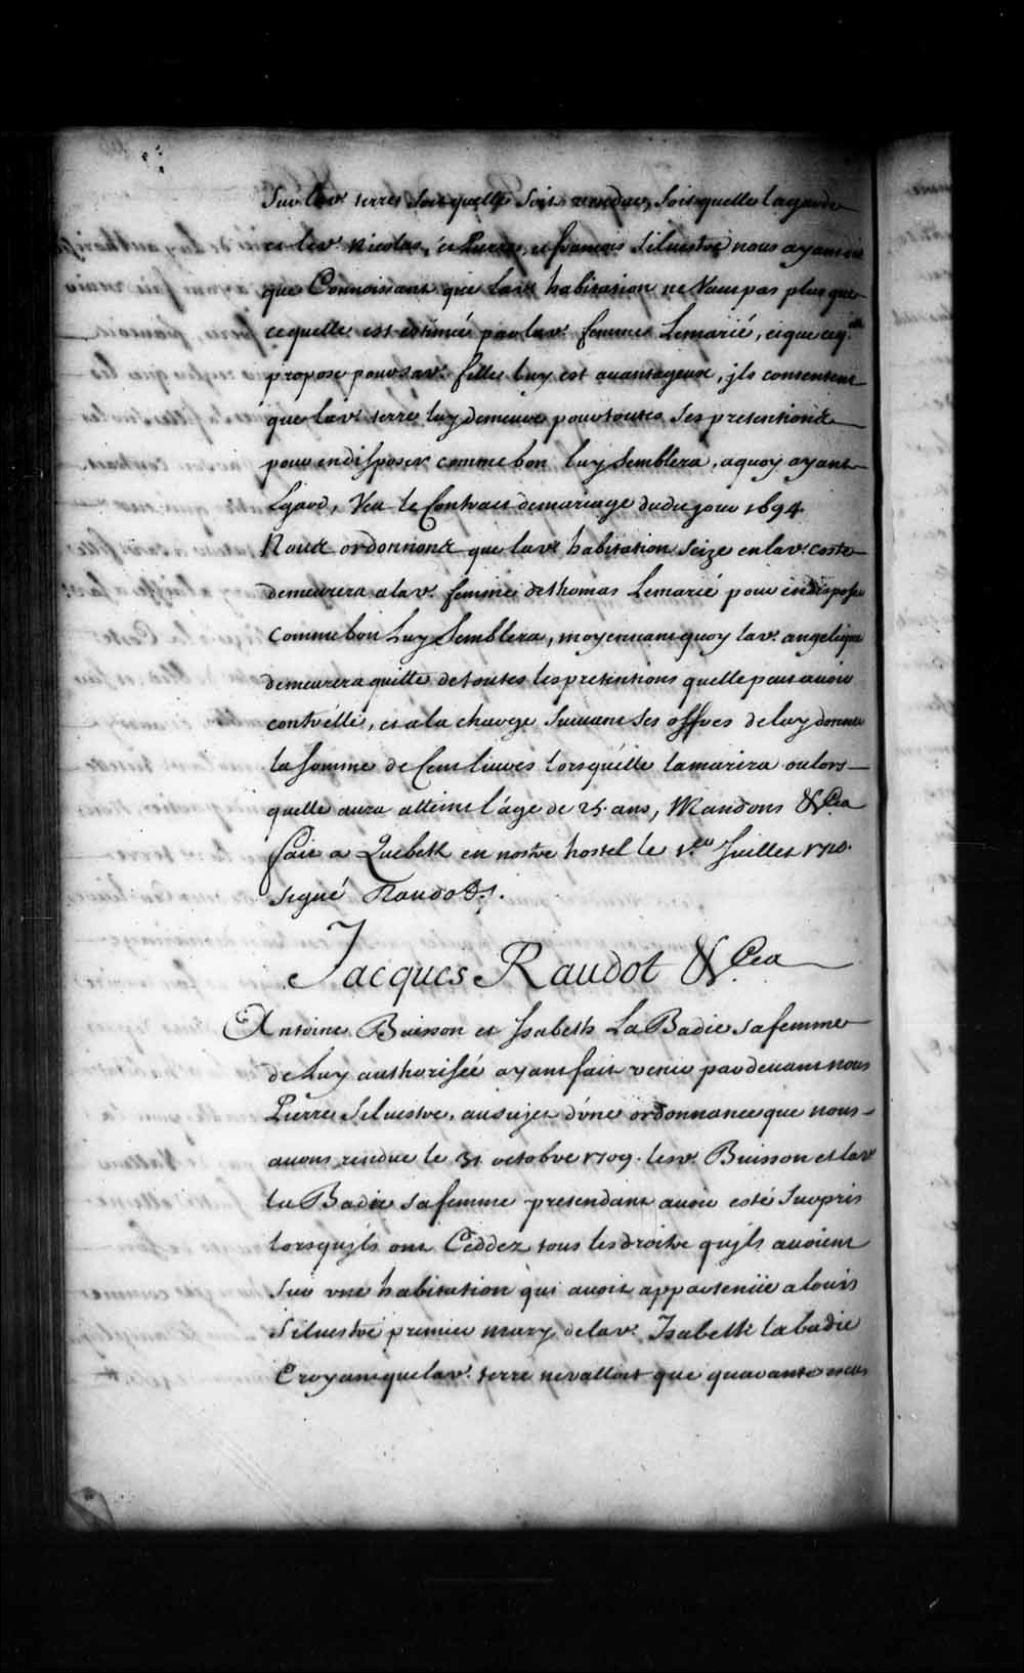 Sur lad. terre soit quelle soit vendue, soit quelle la garde
et lesd. Nicolas, et Pierre, et francois Siluestre nous ayant dit
que Connoissant que lad. habitation ne Vaut pas plus que
ce quelle est estimée par lad. femme Lemarié, et que ce q.lle
propose pour sad. fille luy est auantageux, jls consentent
que lad. terre luy demeure pour toutes ses pretentions
pour en disposer comme bon luy semblera, a quoy ayant
Egard, Veu le Contract de mariage dud. jour 1694
Nous ordonnons que lad. habitation seize en lad. coste
demeurera a lad. femme de thomas Lemarié pour en disposer
Comme bon Luy Semblera, moyennant quoy lad. angelique
demeurera quitte de toutes les pretentions quelle peut auoir
contr'elle, et a la charge suiuant ses offres de luy donner
la somme de Cent liures lorsqu'elle la marira ou lors
quelle aura atteint l'âge de 25. ans, Mandons &Cea
fait a Quebek en nostre hostel le 1.er Juillet 1710.
signé Raudot.
Jacques Raudot &Cea
Antoine Buisson et Isabeth La Badie sa femme
de Luy authorisée ayant fait venir pardeuant nous
Pierre Siluestre, au sujet d'vne ordonnance que nous
auons rendue le 31 octobre 1709. lesd. Buisson et lad.
La Badie sa femme pretendant auoir esté Surpris
lorsqujls ont Ceddez tous les droits qujls auoient
Sur vne habitation qui auoit appartenüe a louis
Siluestre premier mary de lad. Isabelle Labadie
Croyant que lad. terre ne valloit que quarante escus